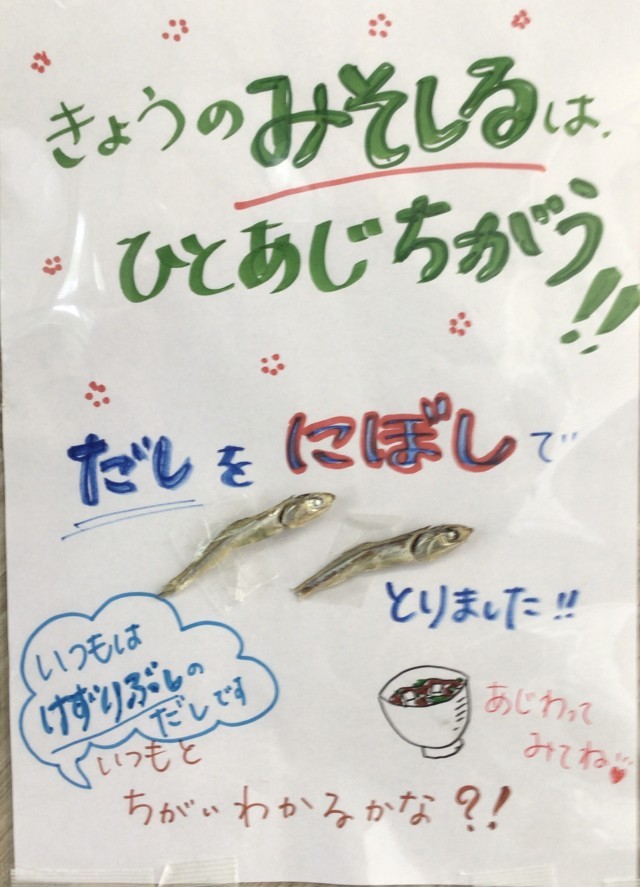 きょうのみそしるは、
ひとあじちがう!!
だしをにぼしで
とりました!!
いつもは
けずりぶしの
だしです
あじわって
みてね
いつもと
ちがいわかるかな?!